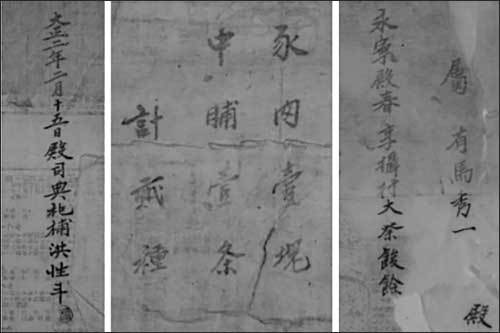 屬 有馬秀一 殿
永寧殿春享攝行大祭餕餘
豕肉壹塊
中脯壹条
計貳種
大正二年二月十五日殿司典祀補洪性斗